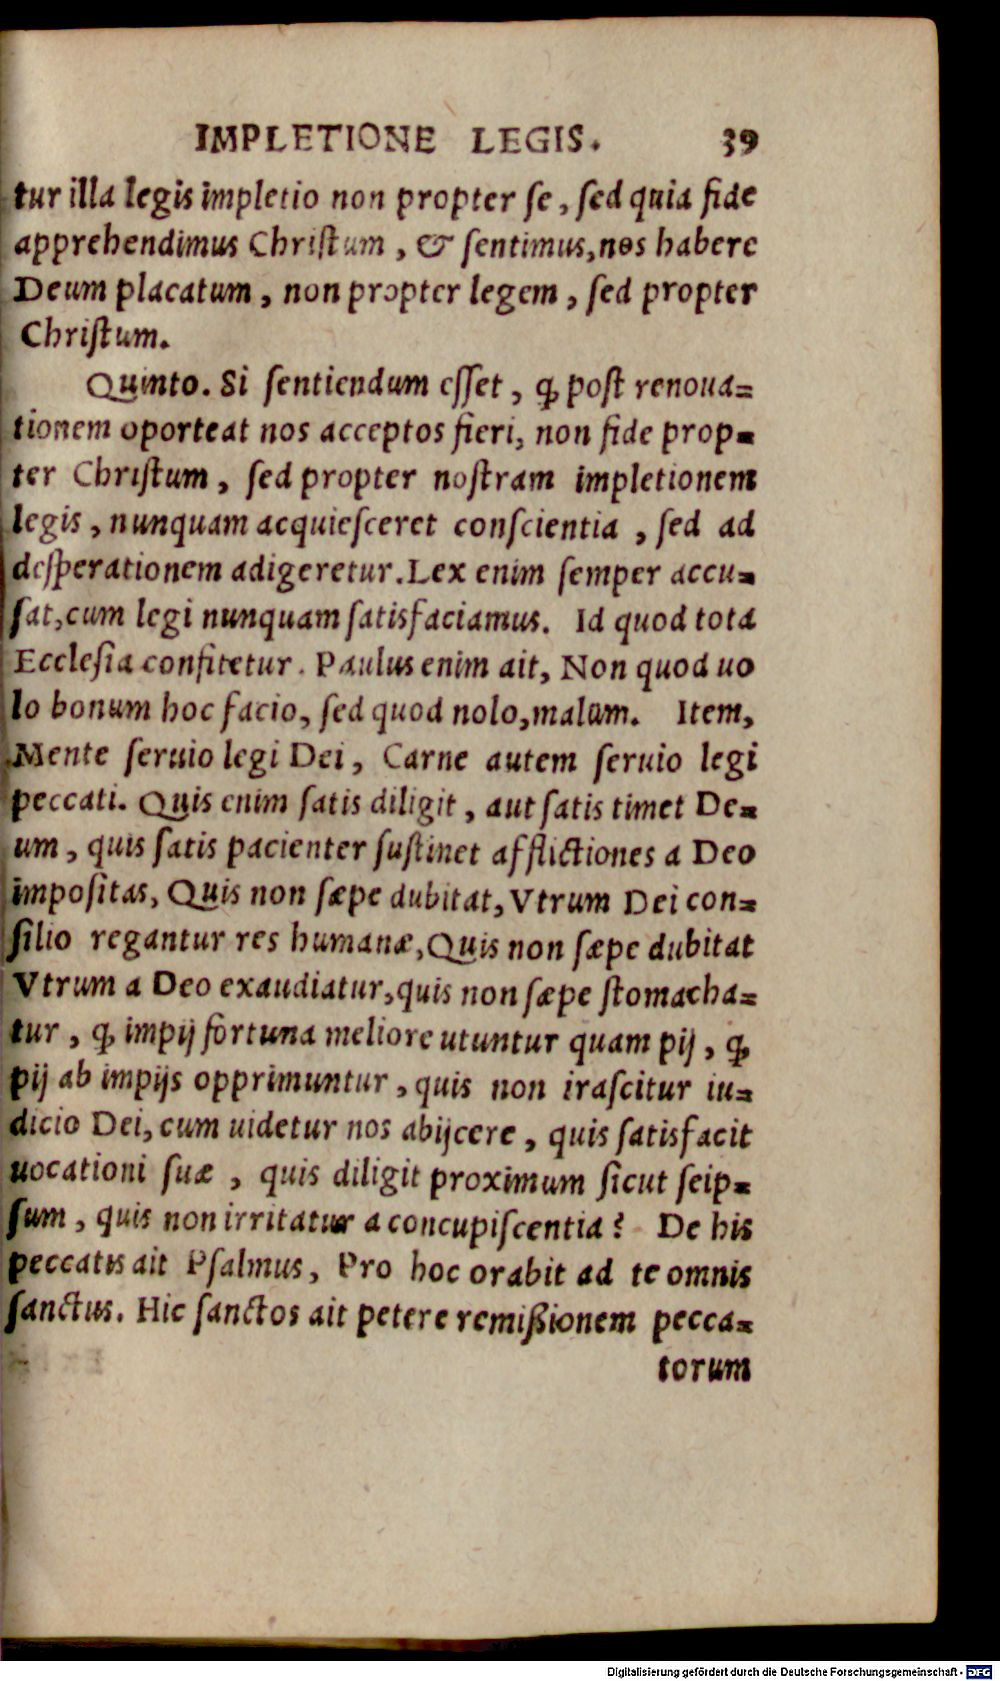 IMPLETIONE LEGIS. 39
tur illa legis impletio non propter se, sed quia fide
apprehendimus Christum, & sentimus, nos habere
Deum placatum, non propter legem, sed propter
Christum.
Quinto. Si sentiendum esset, ꝙ post renoua=
tionem oporteat nos acceptos fieri, non fide prop=
ter Christum, sed propter nostram impletionem
legis, nunquam acquiesceret conscientia, sed ad
desperationem adigeretur. Lex enim semper accu=
sat, cum legi nunquam satisfaciamus. Id quod tota
Ecclesia confitetur. Paulus enim ait, Non quod uo
lo bonum hoc facio, sed quod nolo, malum. Item,
Mente seruio legi Dei, Carne autem seruio legi
peccati. Quis enim satis diligit, aut satis timet De=
um, quis satis pacienter sustinet afflictiones a Deo
impositas, Quis non sæpe dubitat, Vtrum Dei con=
silio regantur res humanæ, Quis non sæpe dubitat
Vtrum a Deo exaudiatur, quis non sæpe stomacha=
tur, ꝙ impij fortuna meliore utuntur quam pij, ꝙ
pij ab impijs opprimuntur, quis non irascitur iu=
dicio Dei, cum uidetur nos abijcere, quis satisfacit
uocationi suæ, quis diligit proximum sicut seip=
sum, quis non irritatur a concupiscentia? De his
peccatis ait Psalmus, Pro hoc orabit ad te omnis
sanctus. Hic sanctos ait petere remißionem pecca=
torum
Digitalisierung gefördert durch die Deutsche Forschungsgemeinschaft - DFG